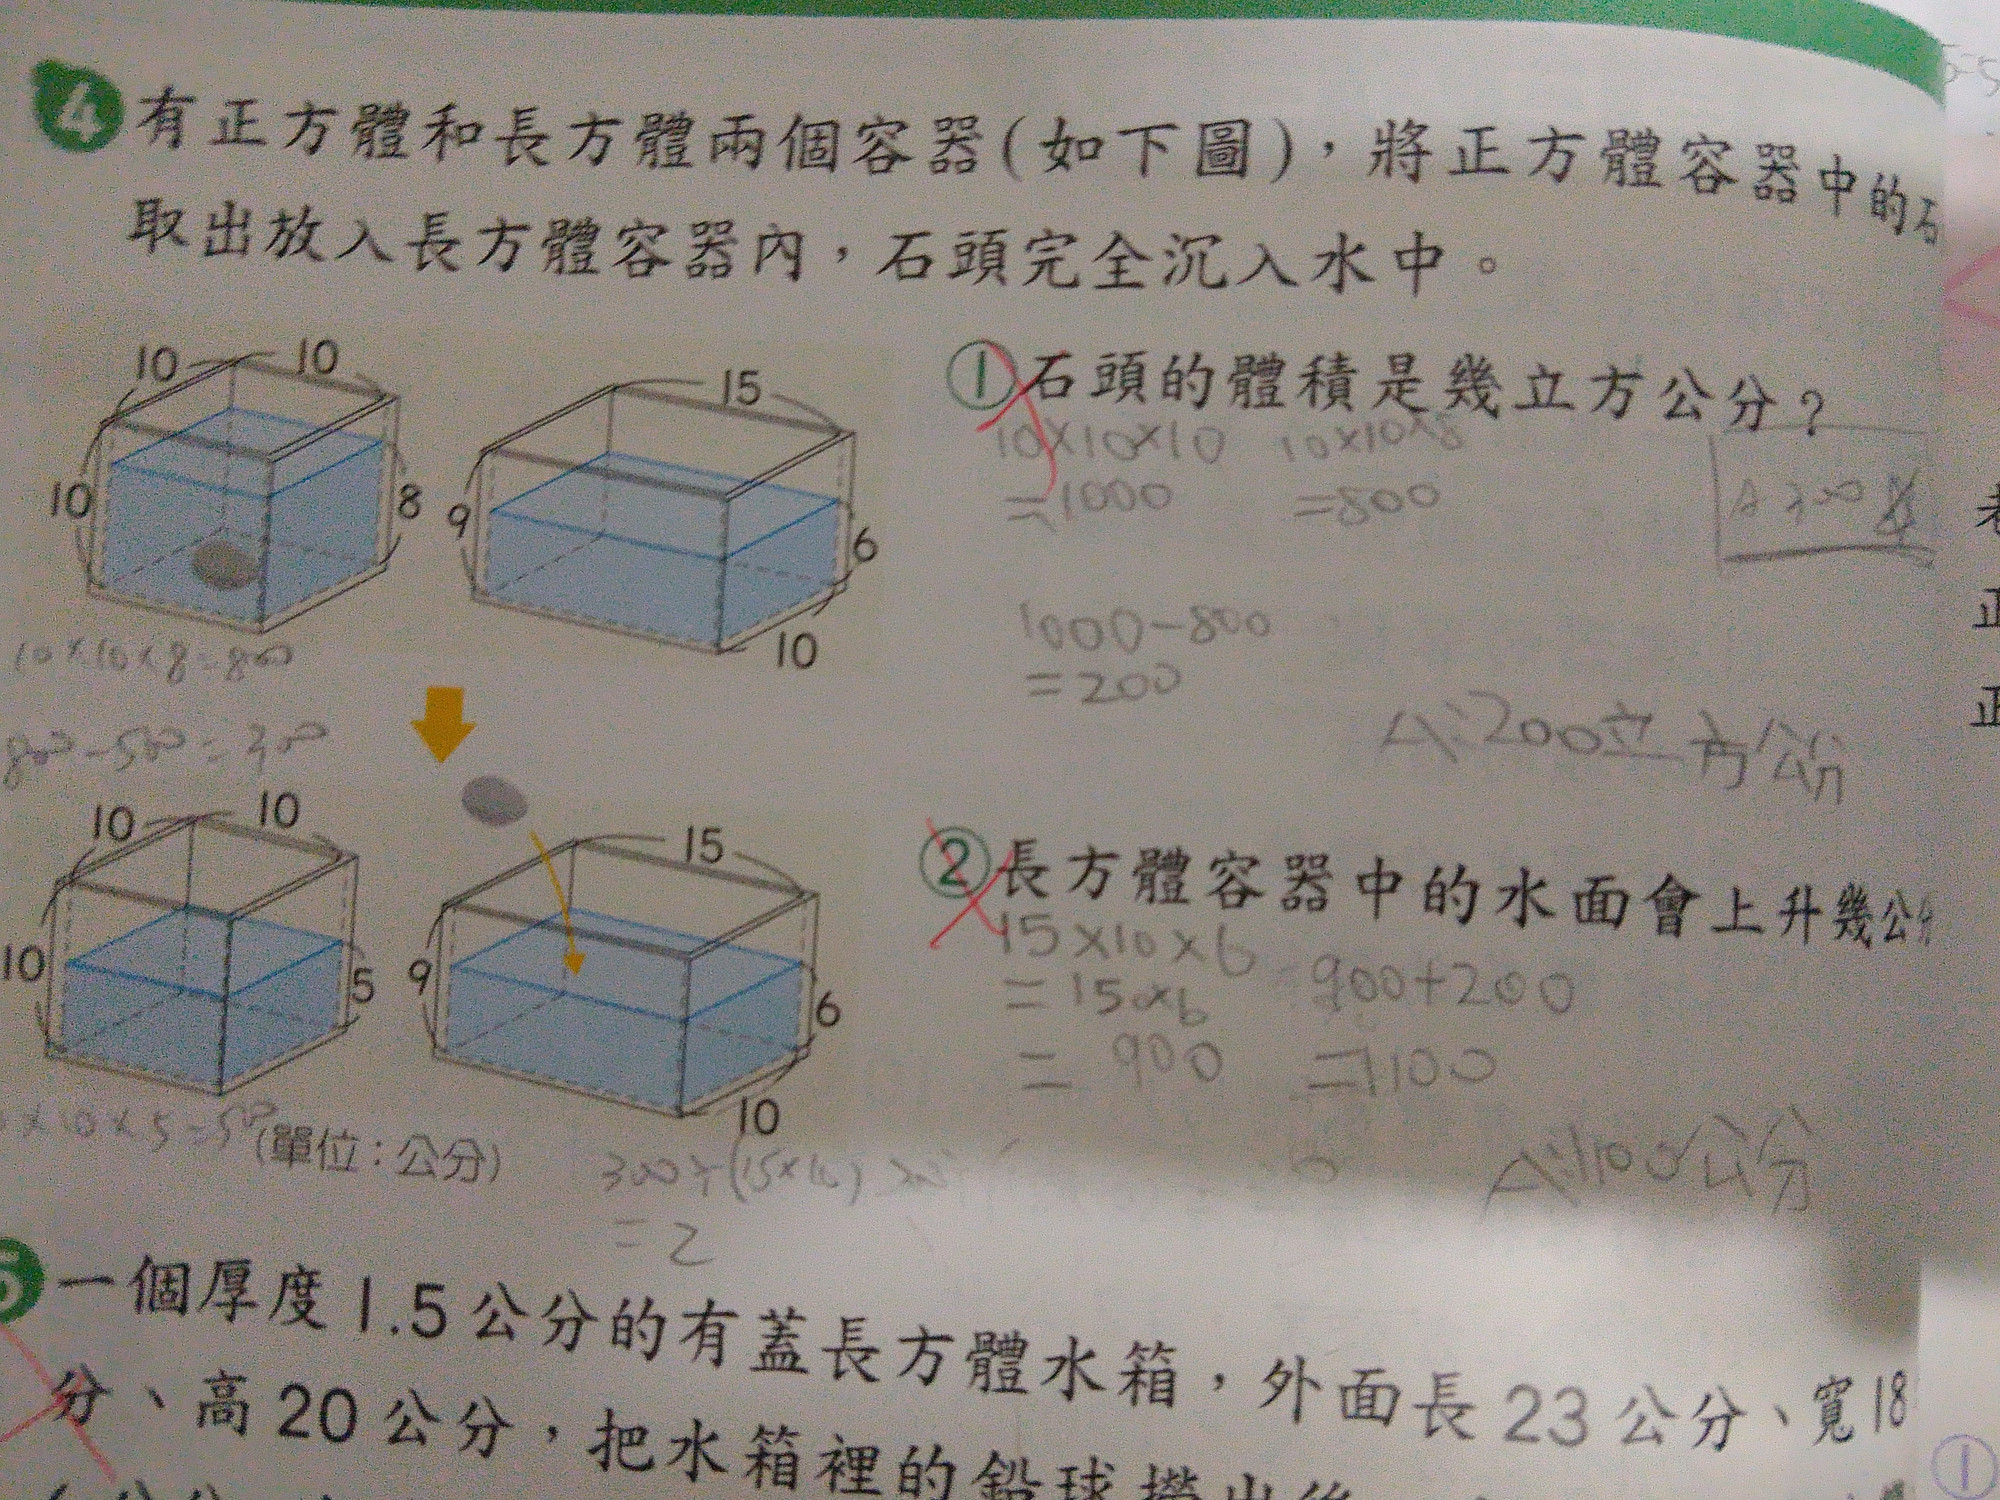 4 有正方體和長方體兩個容器(如下圖)，將正方體容器中的石
取出放入長方體容器內，石頭完全沉入水中。
10 10
15
10 8
9 6
10
10×10×8=800
800-500=300
10 10
15
10 5
9 6
10
×10×5=500
(單位：公分)
300÷(15×10)
=2
① 石頭的體積是幾立方公分？
10×10×10 10×10×8
=1000 =800
A 300
1000-800
=200
A:200立方公分
② 長方體容器中的水面會上升幾公分
15×10×6 900+200
=150×6
=900 =1100
A:1100公分
5 一個厚度1.5公分的有蓋長方體水箱，外面長23公分、寬18
分、高20公分，把水箱裡的鉛球撈出後
正
正
①